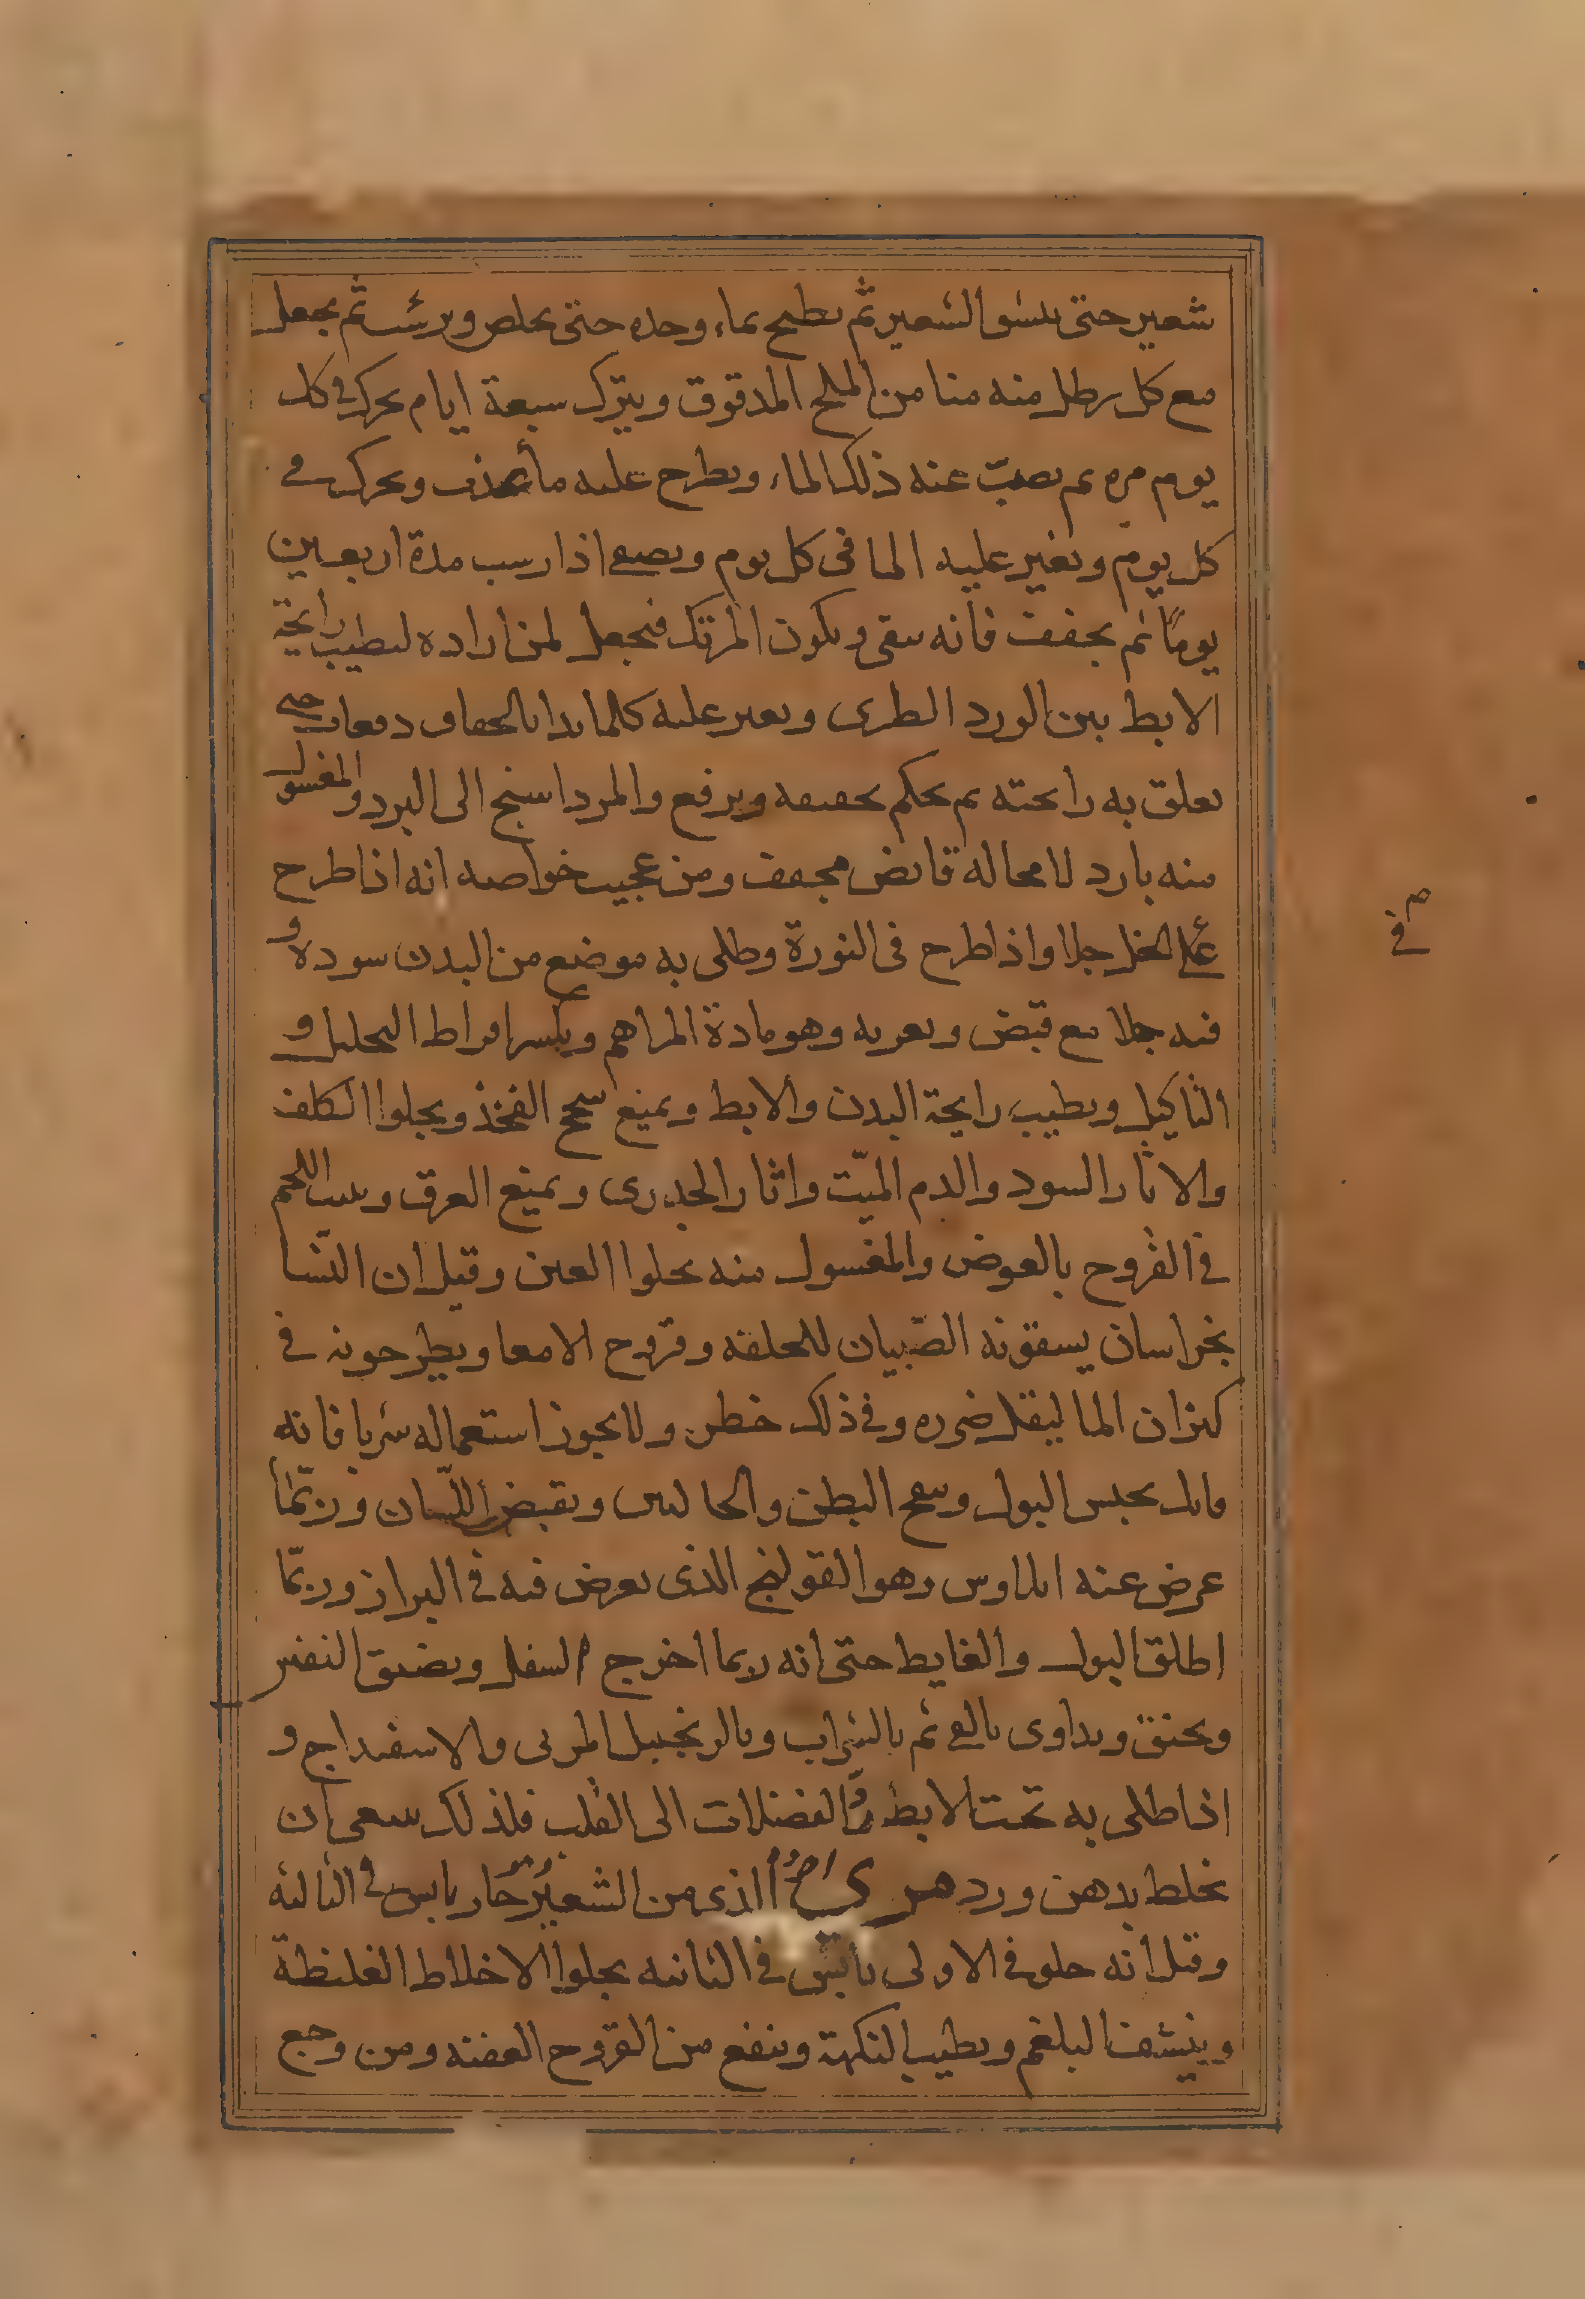 شعير حتى ينشق الشعير ثم يطبخ بماء وحده حتى يخلص ويرسب ثم يجعل
مع كل رطل منه منا من الملح المدقوق ويترك سبعة ايام يحرك في كل
يوم مره ثم يصب عنه ذلك الماء ويطرح عليه ما عذب ويحرك في
كل يوم ويغير عليه الما في كل يوم ويصفى اذا رسب مدة اربعين
يوما ثم يجفف فانه ينقى ويكون المرتك فيجعل لمن اراده لتطييب رايحة
الابط بين الورد الطرى ويغير عليه كلما بدا بالجفاف دفعات حتى
يعلق به رايحته ثم يحكم تجفيفه ويرفع والمرداسنج الى البرد والمغسول
منه بارد لا محاله قابض مجفف ومن عجيب خواصه انه اذا طرح
على الخل حلا واذا طرح فى النورة وطلى به موضع من البدن سوده و
فيه جلا مع قبض وتغريه وهو مادة المراهم ويكسر افراط التحليل و
التاكيل ويطيب رايحة البدن والابط ويمنع سحج الفخذ ويجلوا الكلف
والاثار السود والدم الميت واثار الجدرى ويمنع العرق وينبت اللحم
في القروح بالعوض والمغسول منه يجلوا العين وقيل ان النسا
بخراسان يسقونه الصبيان للخلفه وقروح الامعا ويطرحونه في
كيزان الما ليقل ضرره وفي ذلك خطر ولا يجوز استعماله شربا فانه
قاتل يحبس البول وينفخ البطن والحالبين ويقبض اللسان وربما
عرض عنه ايلاوس وهو القولنج الذى يعرض فيه في البراز وربما
اطلق البول والغايط حتى انه ربما اخرج السفل ويضيق النفس
ويخنق ويداوى بالقى ثم بالشراب وبالزنجبيل المربى والاسفيداج و
اذا طلى به تحت الابط رد الفضلات الى القلب فلذلك ينبغى ان
يخلط بدهن ورد مرى الذى من الشعير حار يابس في الثالثه
وقيل انه حلو في الاولى يابس في الثانيه يجلوا الاخلاط الغليظة
وينشف البلغم ويطيب النكهة وينفع من القروح العفنه ومن وجع